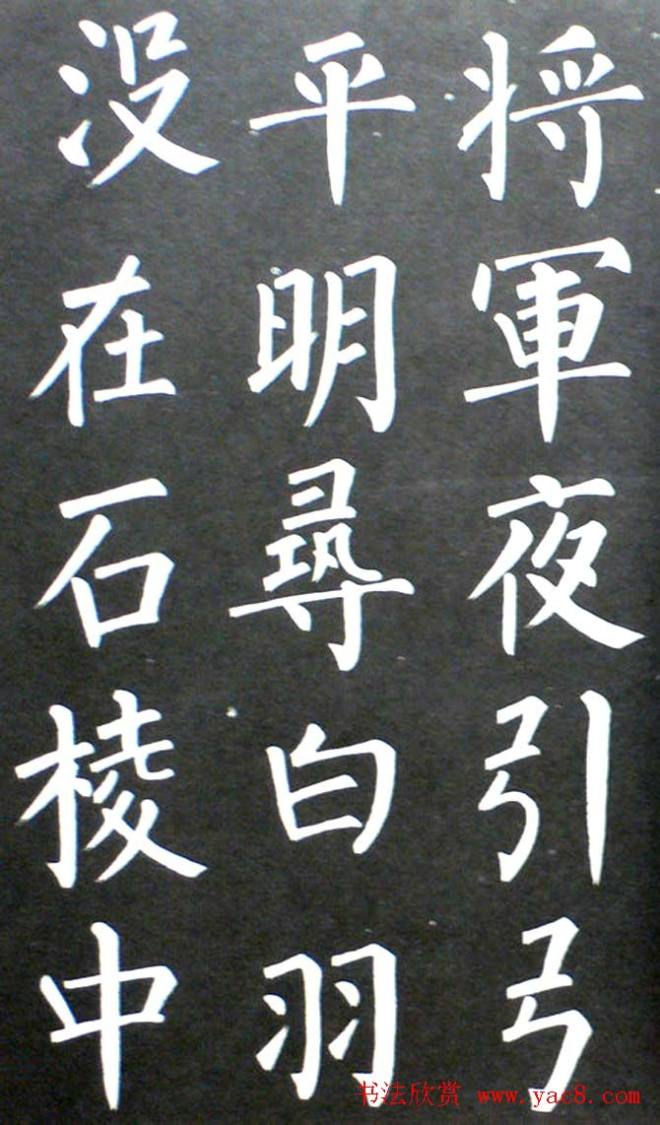 将軍夜引弓
平明尋白羽
没在石棱中
书法欣赏 www.yac8.com